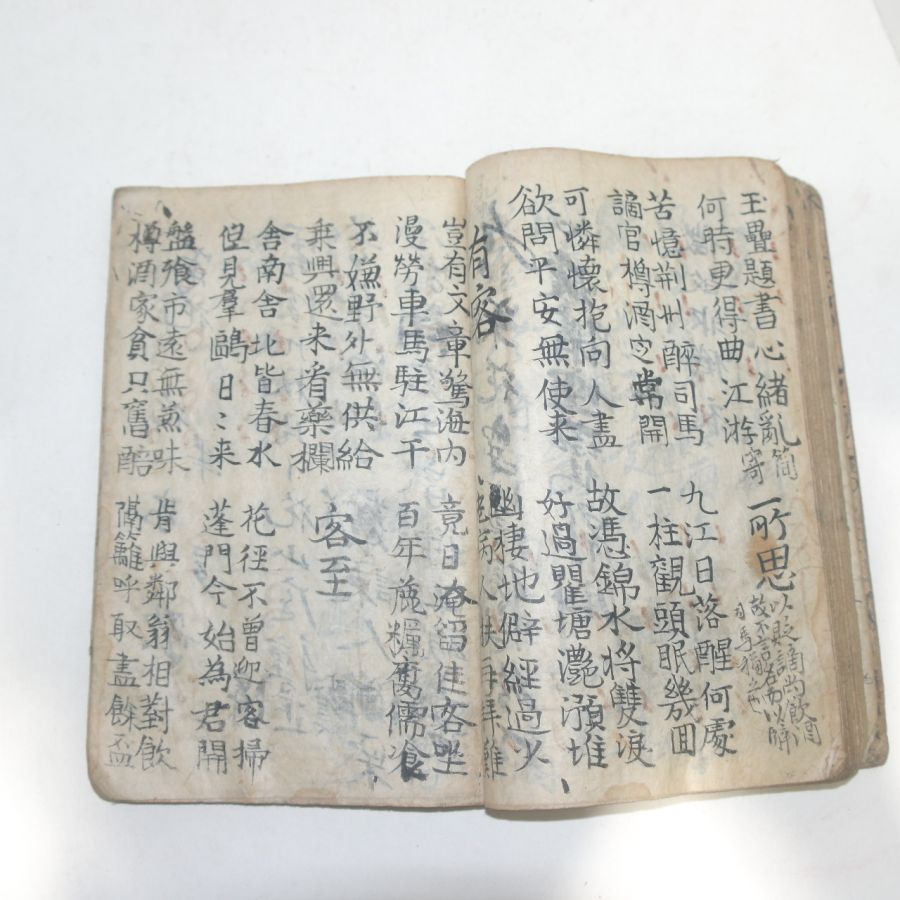 玉壘題書心緒亂
何時更得曲江游
所思
苦憶荆州醉司馬
謫官樽酒定常開
九江日落醒何處
一柱觀頭眠幾回
可憐懷抱向人盡
欲問平安無使来
故馮錦水將雙淚
好過瞿塘灧澦堆
有客
幽棲地僻經過少
老病人扶再拜難
豈有文章驚海内
漫勞車馬駐江干
竟日淹留佳客坐
百年麄糲腐儒飡
不嫌野外無供給
乗興還来看藥欄
客至
舍南舍北皆春水
但見羣鷗日〻来
花徑不曾迎客掃
蓬門今始為君開
盤飱市遠無兼味
樽酒家貧只舊醅
肯與鄰翁相對飲
隔籬呼取盡餘盃